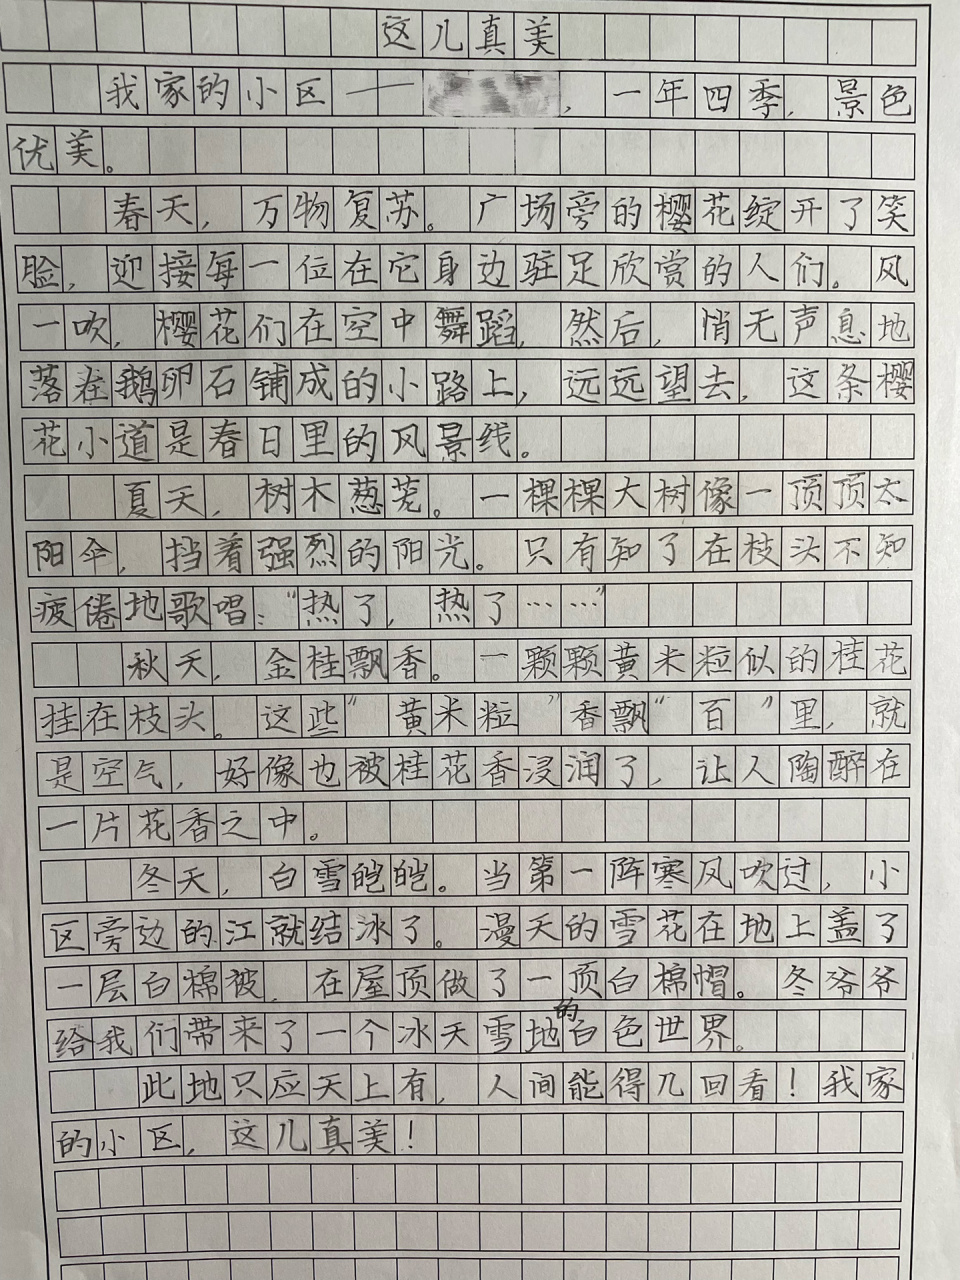 这儿真美
我家的小区——，一年四季，景色
优美。
春天，万物复苏。广场旁的樱花绽开了笑
脸，迎接每一位在它身边驻足欣赏的人们。风
一吹，樱花们在空中舞蹈，然后，悄无声息地
落在鹅卵石铺成的小路上，远远望去，这条樱
花小道是春日里的风景线。
夏天，树木葱茏。一棵棵大树像一顶顶太
阳伞，挡着强烈的阳光。只有知了在枝头不知
疲倦地歌唱：“热了，热了……”
秋天，金桂飘香。一颗颗黄米粒似的桂花
挂在枝头。这些“黄米粒”香飘“百”里，就
是空气，好像也被桂花香浸润了，让人陶醉在
一片花香之中。
冬天，白雪皑皑。当第一阵寒风吹过，小
区旁边的江就结冰了。漫天的雪花在地上盖了
一层白棉被，在屋顶做了一顶白棉帽。冬爷爷
给我们带来了一个冰天雪地的白色世界。
此地只应天上有，人间能得几回看！我家
的小区，这儿真美！